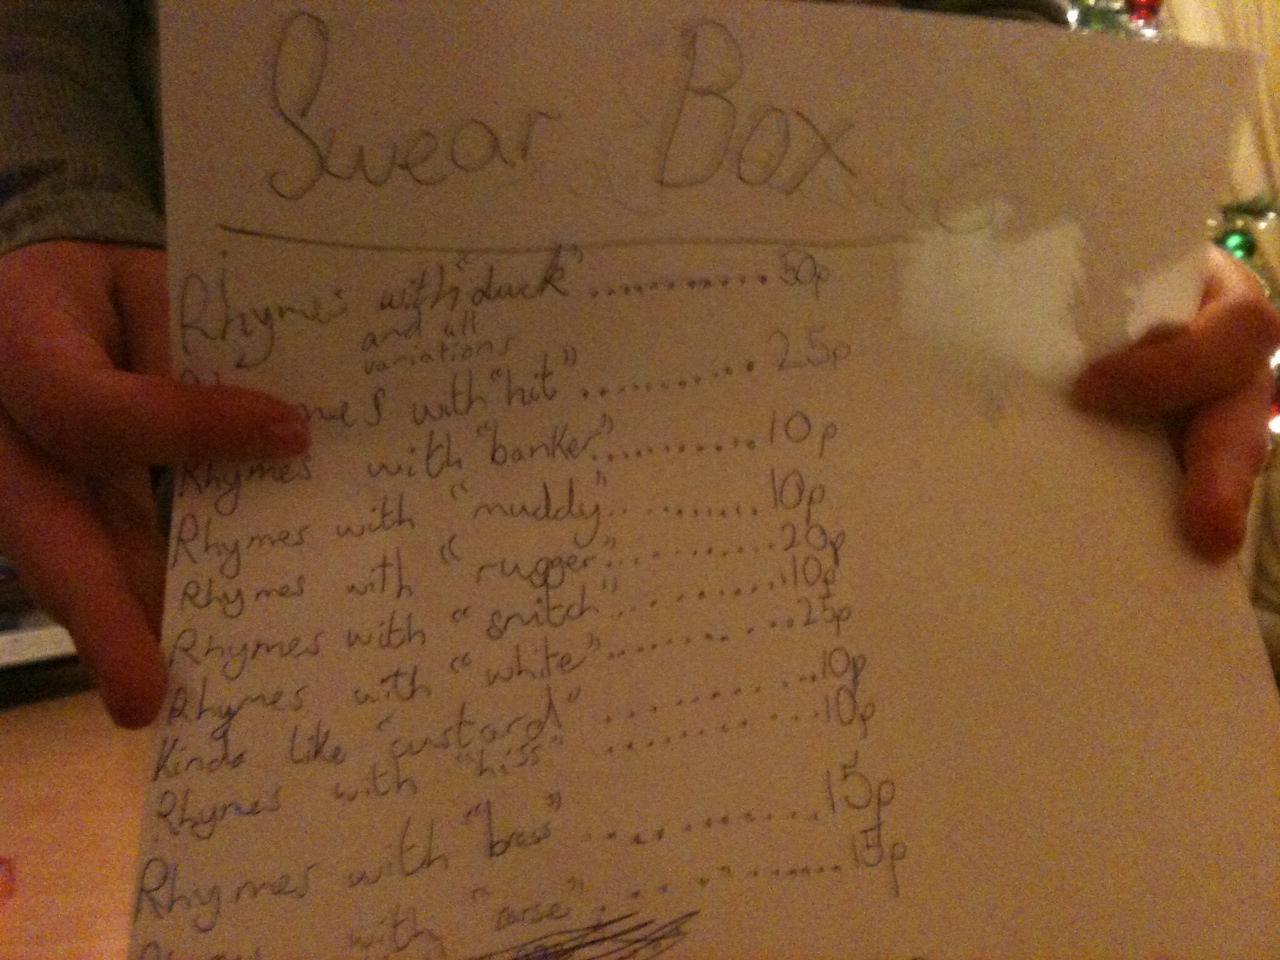 Swear Box
Rhymes with "duck" ............ 50p
and all
variations
mes with "hit" ........... 25p
Rhymes with "banker" .......... 10p
Rhymes with "muddy" .......... 10p
Rhymes with "rugger" .......... 20p
Rhymes with "snitch" .......... 10p
Rhymes with "white" .......... 25p
Kinda like "custard" .......... 10p
Rhymes with "hiss" .......... 10p
Rhymes with "brass" .......... 15p
with .......... 15p